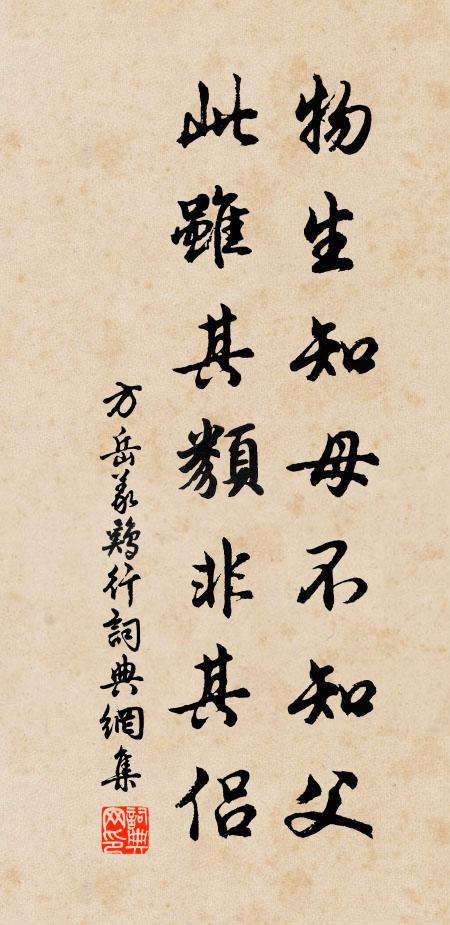 物生知母不知父
此雖其類非其侶
方岳義鷄行詞典網集
詞典网印